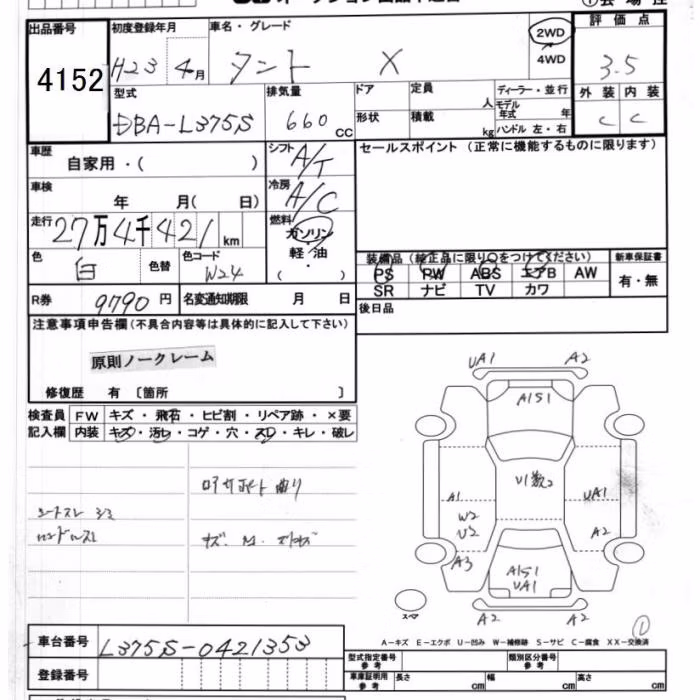 出品番号
4152
初度登録年月
H23 4月
車名・グレード
タント X
2WD
4WD
評価点
3.5
外装 内装
C C
型式
DBA-L375S
排気量
660 CC
ドア
形状
定員
人
積載
kg
ディーラー・並行
モデル
年式 年
ハンドル 左・右
車歴
自家用・( )
シフト
A/T
セールスポイント (正常に機能するものに限ります)
車検
年 月( 日)
冷房
A/C
走行
27万4千421km
燃料
ガソリン
軽・油
( )
色
白
色替
色コード
W24
装備品(純正品に限り○をつけてください)
PS PW ABS エアB AW
SR ナビ TV カワ
新車保証書
有・無
R券
9790円
名変通知期限 月 日
後日品
注意事項申告欄(不具合内容等は具体的に記入して下さい)
原則ノークレーム
修復歴 有 〔箇所 〕
検査員
記入欄
FW キズ・飛石・ヒビ割・リペア跡・×要
内装 キズ・汚レ・コゲ・穴・スレ・キレ・破レ
UA1 A2
A151
U1数2
A1 UA1
W2
U2 A2
A3
A151
UA1
スペア
A2 A2
①
A-キズ E-エクボ U-凹み W-補修跡 S-サビ C-腐食 XX-交換済
車台番号
L375S-0421353
登録番号
型式指定番号
参考
類別区分番号
参考
車庫証明用
参考
長さ cm
幅 cm
高さ cm